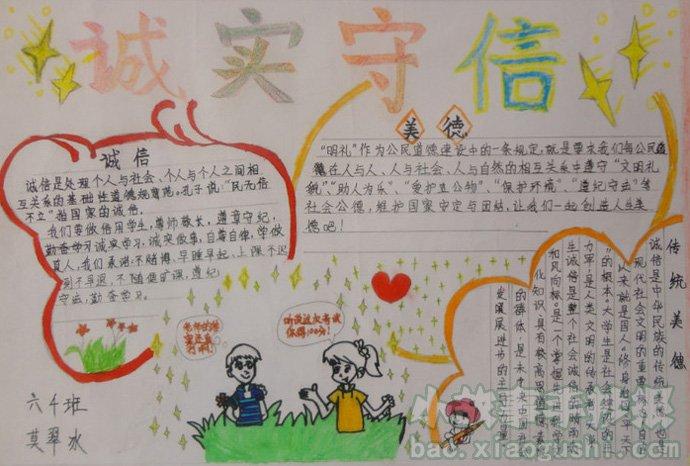 诚实守信
诚信
诚信是处理个人与社会、个人与个人之间相
互关系的基础性道德规范。孔子说“民无信
不立”指国家的诚信。
我们要做信用学生,尊师敬长,遵章守纪,
勤奋学习诚实学习,诚实做事,自尊自律,学做
真人,我们承诺:不赌博,早睡早起、上课不迟
到不早退,不随便旷课,遵纪
守法,勤奋学习。
美德
“明礼”作为公民道德建设中的一条规定,就是要求我们每公民
在人与人、人与社会、人与自然的相互关系中遵守“文明礼
貌”“助人为乐”、“爱护公物”、“保护环境”、“遵纪守法”等
社会公德,维护国家安定与团结,让我们一起创造人生美
德吧!
传统美德
诚信是中华民族的传统美德也
现代社会文明的重要标
以来就是国人“修身
的根本”。大学生是社会
力军,是人类文明的传承
生诚信是整个社会诚信
和风向标。是一个掌握
化知识,具有较高思道德素
的群体,是未来中国社
发展进步的主
听说这次考试
你得100分!
六年班
莫翠冰
小故事手抄报
bao.xiaogushi.com